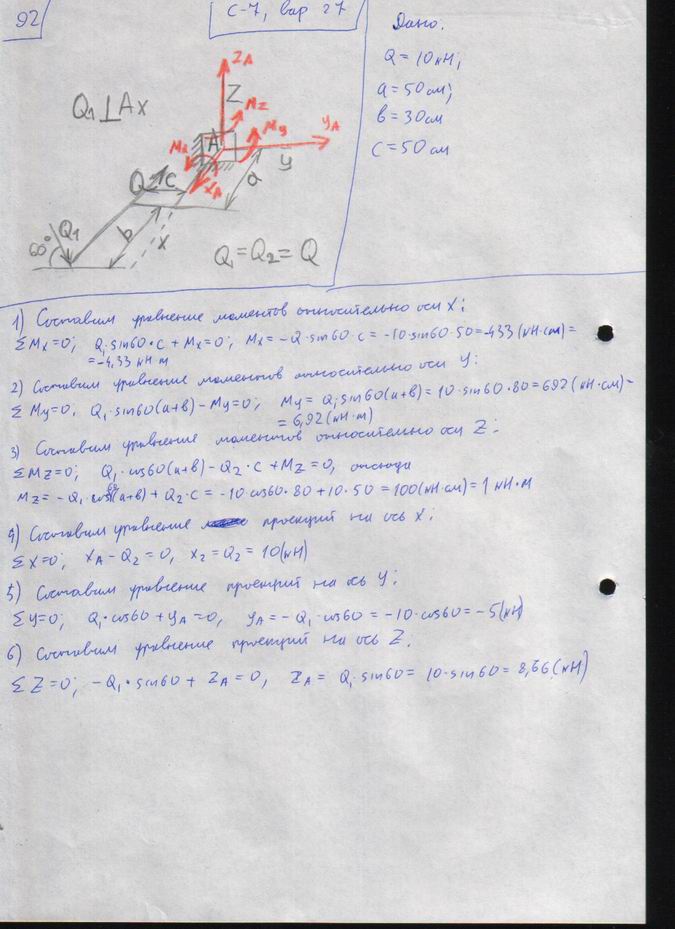 92
С-7, вар 27
Дано.
Q = 10 кН;
a = 50 см;
в = 30 см
c = 50 см
Q₁⊥Ax
Z_A
Z
M_Z
M_y
y_A
M_x
A
y
X_A
Q₂
c
a
Q₁
60°
b
x
Q₁ = Q₂ = Q
1) Составим уравнение моментов относительно оси X:
ΣMx=0; Q₁·sin60·c + Mx=0; Mx = -Q·sin60·c = -10·sin60·50=-433(кН·см)=
=-4,33 кН·м
2) Составим уравнение моментов относительно оси Y:
ΣMy=0. Q₁·sin60(a+в)-My=0; My = Q₁sin60(a+в) = 10·sin60·80=692(кН·см)=
= 6,92(кН·м)
3) Составим уравнение моментов относительно оси Z:
ΣMz=0; Q₁·cos60(a+в) - Q₂·c + Mz = 0, отсюда
Mz = -Q₁·cos60(a+в) + Q₂·c = -10·cos60·80+10·50 = 100(кН·см)=1 кН·м
4) Составим уравнение проекций на ось X:
ΣX=0; X_A - Q₂ = 0, X₂ = Q₂ = 10(кН)
5) Составим уравнение проекций на ось Y:
ΣY=0; Q₁·cos60 + y_A = 0, y_A = -Q₁·cos60 = -10·cos60 = -5(кН)
6) Составим уравнение проекций на ось Z.
ΣZ=0; -Q₁·sin60 + Z_A = 0, Z_A = Q₁·sin60 = 10·sin60 = 8,66(кН)